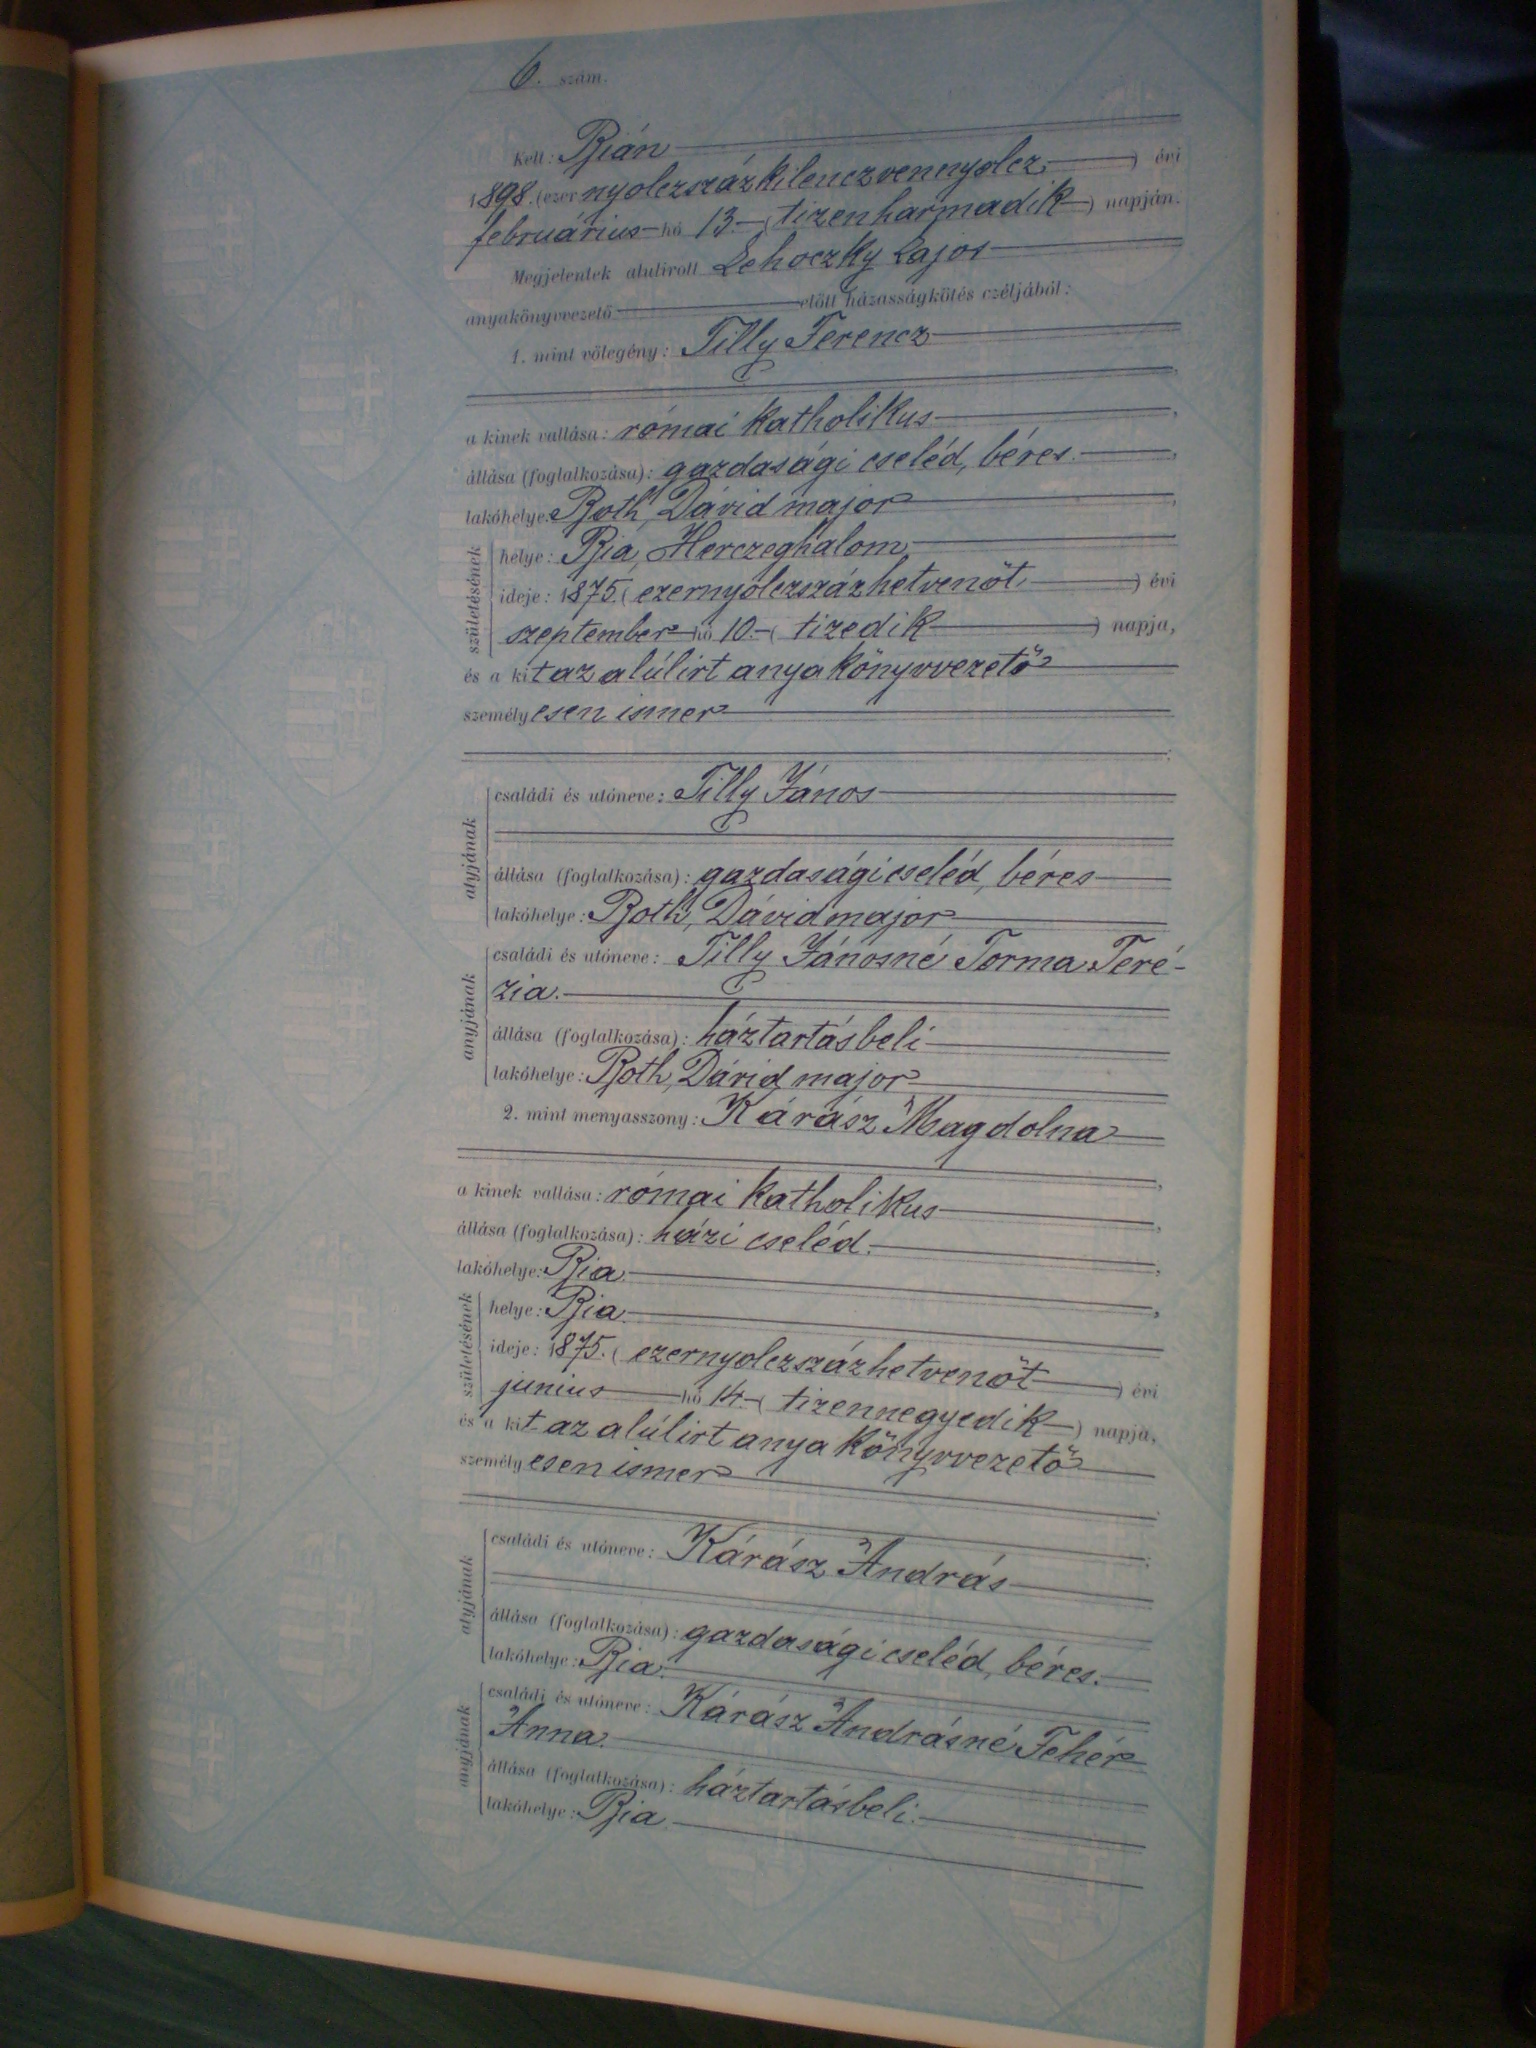 6. szám.
Kelt: Bián
1898. (ezer nyolczszáz kilenczvennyolcz ) évi
februárius hó 13. ( tizenharmadik ) napján.
Megjelentek alulirott Lehoczky Lajos
anyakönyvvezető előtt házasságkötés czéljából:
1. mint vőlegény: Tilly Ferencz
a kinek vallása: római katholikus ,
állása (foglalkozása): gazdasági cseléd, béres. ,
lakóhelye: Roth, Dávid major ,
születésének
helye: Bia, Herczeghalom,
ideje: 1875. ( ezernyolczszázhetvenöt ) évi
szeptember hó 10. ( tizedik ) napja,
és a kit az alúlirt anyakönyvvezető
személyesen ismer
;
atyjának
családi és utóneve: Tilly János
állása (foglalkozása): gazdasági cseléd, béres
lakóhelye: Roth, Dávid major
anyjának
családi és utóneve: Tilly Jánosné Torma Teré-
zia.
állása (foglalkozása): háztartásbeli
lakóhelye: Roth, Dávid major
2. mint menyasszony: Kárász Magdolna
,
a kinek vallása: római katholikus ,
állása (foglalkozása): házi cseléd. ,
lakóhelye: Bia. ,
születésének
helye: Bia.
ideje: 1875. ( ezernyolczszázhetvenöt ) évi
junius hó 14. ( tizennegyedik ) napja,
és a kit az alúlirt anyakönyvvezető
személyesen ismer
;
atyjának
családi és utóneve: Kárász András
állása (foglalkozása): gazdasági cseléd, béres.
lakóhelye: Bia.
anyjának
családi és utóneve: Kárász Andrásné Fehér
Anna.
állása (foglalkozása): háztartásbeli.
lakóhelye: Bia